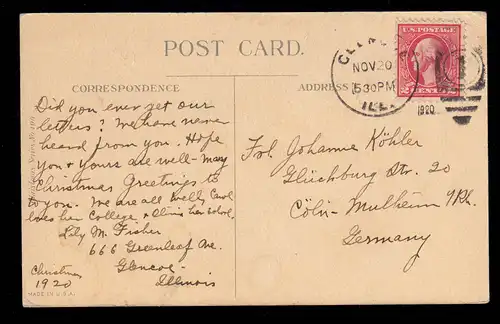 POST CARD.
CORRESPONDENCE
ADDRESS
Did you ever get our
letters? We have never
heard from you. Hope
you & yours are well - May
Christmas Greetings to
to you. We are all well, Carol
loves her College &
Lily M. Fisher
666 Greenleaf Ave.
Glencoe
Illinois
Christmas
1920
MADE IN U.S.A.
NOV 20
530 PM
ILL.
1920
U.S. POSTAGE
2 CENTS 2
Frl. Johanne Köhler
Glücksburg Str. 20
Cöln-Mulheim a/Rh.
Germany